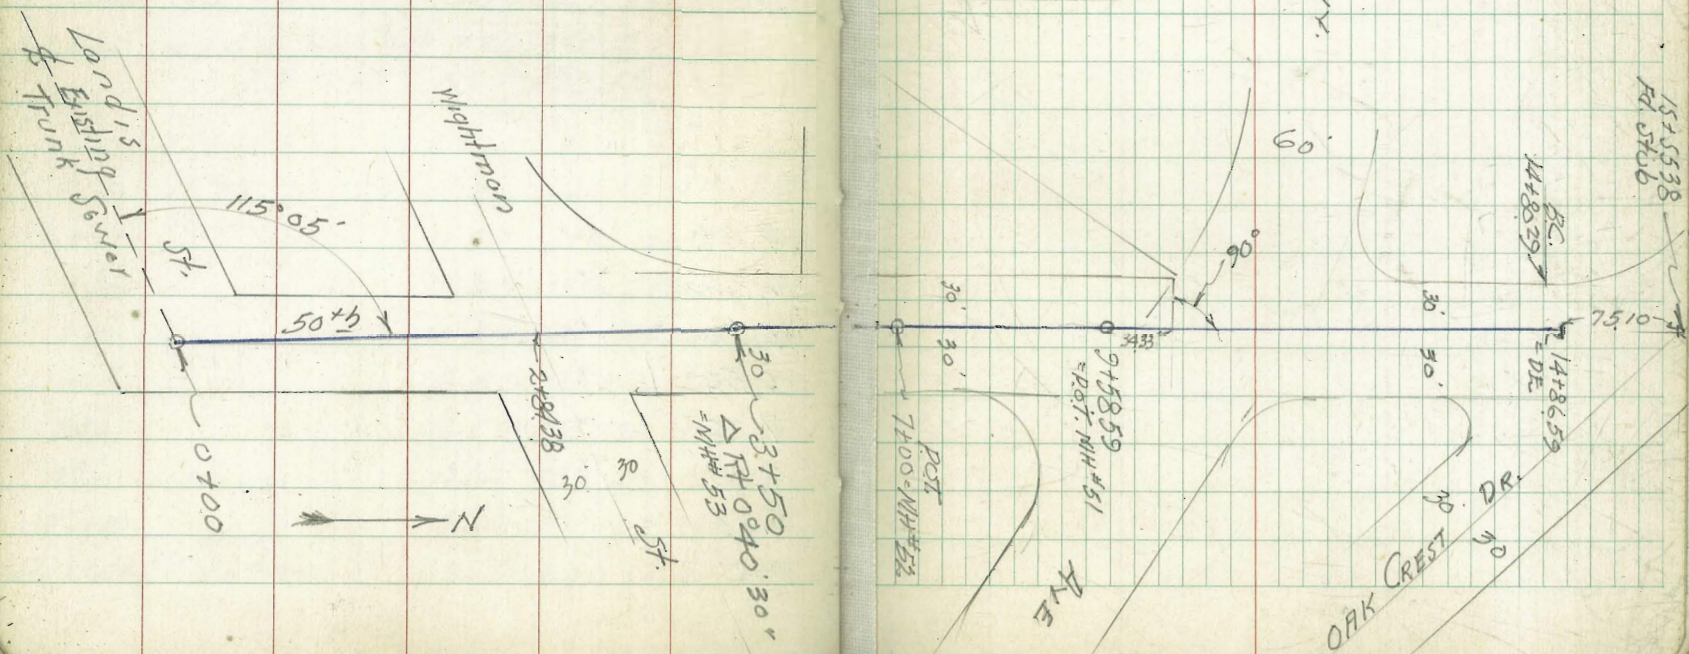 Landis
℄ Existing Sewer
& Trunk
St.
115° 05'
50th
0+00
N
Wightman
2+84.38
30'
30
St.
30'
3+50
Δ Rt 0°40'30"
=MH#53
30'
30'
P.O.T.
7+00=MH#52
9+58.59
=P.O.T. MH#51
34.33
90°
60'
Ave
30'
30'
B.C.
14+80.29
14+86.59
= D.E.
75.10
15+55.38
Fd. Stub
30
30
OAK CREST DR.